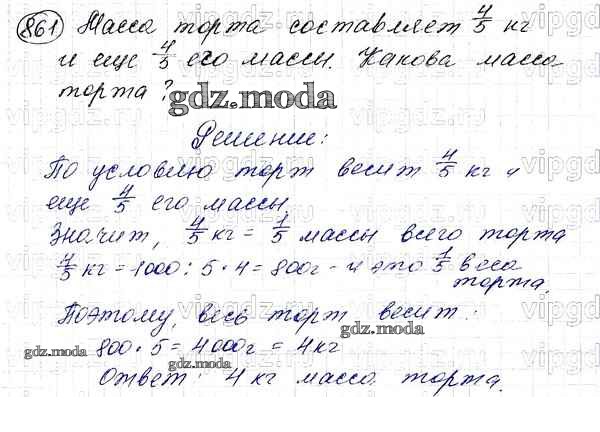 861 Масса торта составляет 4/5 кг
и еще 4/5 его массы. Какова масса
торта?
gdz.moda
Решение:
По условию торт весит 4/5 кг и
еще 4/5 его массы
Значит, 4/5 кг = 1/5 массы всего торта
4/5 кг = 1000 : 5 · 4 = 800г - и это 1/5 веса
торта.
Поэтому, весь торт весит:
gdz.moda
800 · 5 = 4000г = 4кг
gdz.moda
Ответ: 4 кг масса торта.
gdz.moda